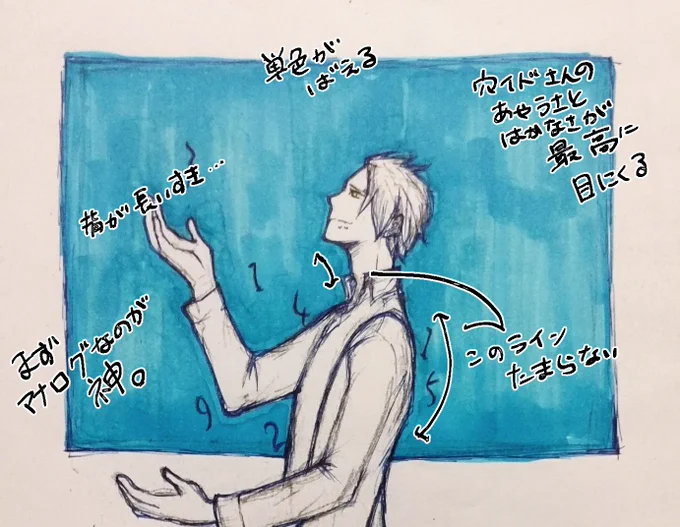 単色が
ばえる
穴イドさんの
あやうさと
はかなさが
最高に
目にくる
指が長いすき…
1
4
まず
アナログなのが
神。
このライン
たまらない
1
5
9
2